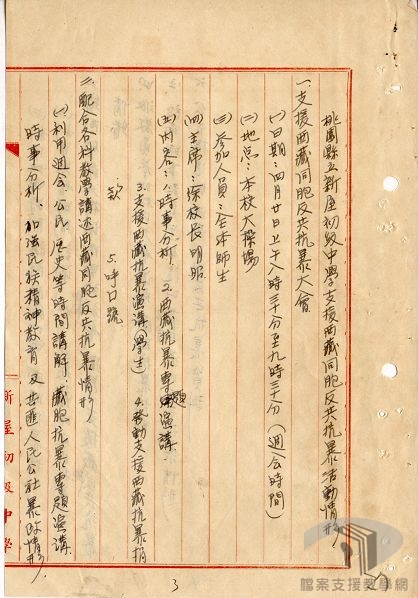 桃園縣立新屋初級中學支援西藏同胞反共抗暴活動情形
一、支援西藏同胞反共抗暴大會
(一)日期：四月廿日上午八時三十分至九時三十分（週會時間）
(二)地点：本校大操場
(三)參加人員：全体師生
(四)主席：徐校長明昭
(五)內容：1.時事分析 2.西藏抗暴專題演講
3.支援西藏抗暴演講（學生） 4.發動支援西藏抗暴捐
款 5.呼口號
二、配合各科教學講述西藏同胞反共抗暴情形
(一)利用週会、公民、歷史等時間講解、藏胞抗暴專題演講、
時事分析、加強民族精神教育及共匪人民公社暴政情形、
新屋初級中學
3
檔案支援教學網